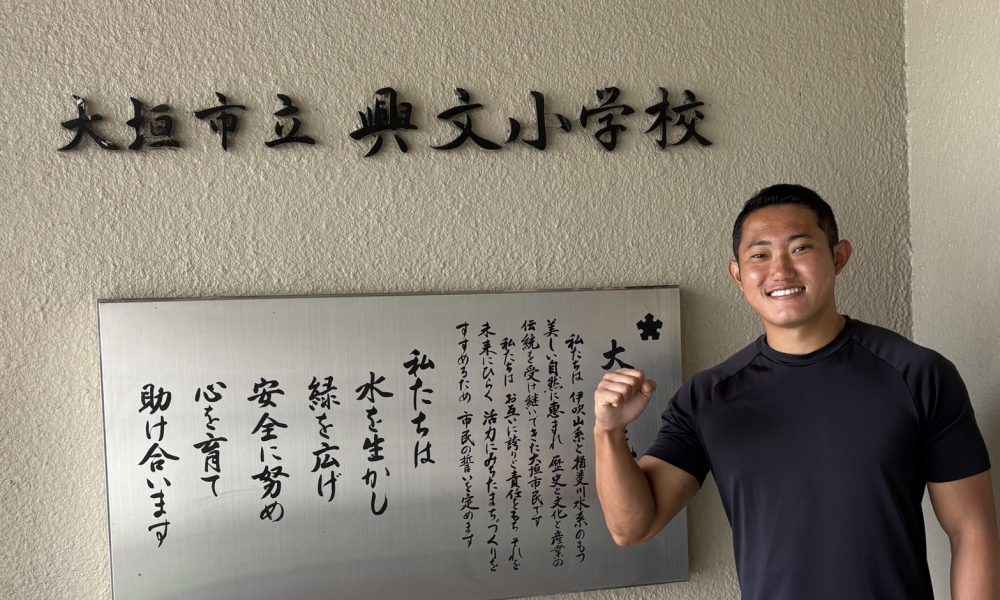 大垣市立 興文小学校
大
私たちは 伊吹山系と揖斐川水系のもつ
美しい自然に恵まれ 歴史と文化と産業の
伝統を受け継いできた大垣市民です
私たちは お互いに誇りと責任をもち それを
未来にひらく 活力にみちたまちづくりを
すすめるため 市民の誓いを定めます
私たちは
水を生かし
緑を広げ
安全に努め
心を育て
助け合います